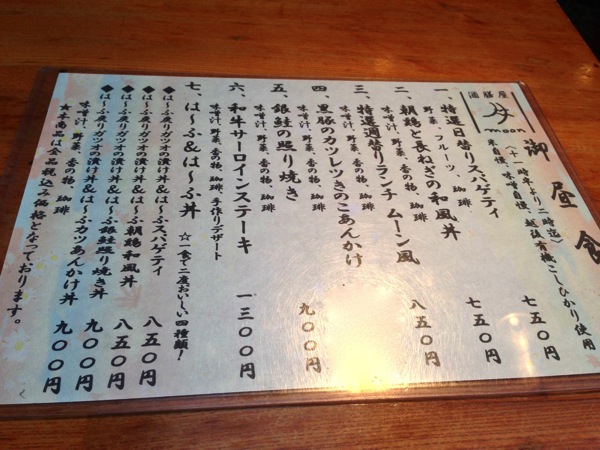 酒膳屋
moon
御昼食
(十一時半より二時迄)
米自慢、味噌自慢、越後有機こしひかり使用
一、特選日替りスパゲティ 七五〇円
野菜、フルーツ、珈琲
二、朝鶏と長ねぎの和風丼 七五〇円
味噌汁、野菜、香の物、珈琲
三、特選週替りランチ ムーン風 八五〇円
味噌汁、野菜、香の物、珈琲
四、黒豚のカツレツきのこあんかけ
味噌汁、野菜、香の物、珈琲
五、銀鮭の照り焼き 九〇〇円
味噌汁、野菜、香の物、珈琲
六、和牛サーロインステーキ 一三〇〇円
味噌汁、野菜、香の物、珈琲、手作りデザート
七、は~ふ&は~ふ丼 ☆一食で二度おいしい四種類!
◆は~ふ炙りカツオの漬け丼&は~ふスパゲティ 八五〇円
◆は~ふ炙りカツオの漬け丼&は~ふ朝鶏和風丼 八五〇円
◆は~ふ炙りカツオの漬け丼&は~ふ銀鮭照り焼き丼 九〇〇円
◆は~ふ炙りカツオの漬け丼&は~ふカツあんかけ丼 九〇〇円
味噌汁、野菜、香の物、珈琲
★本商品は全品税込み価格となっております。